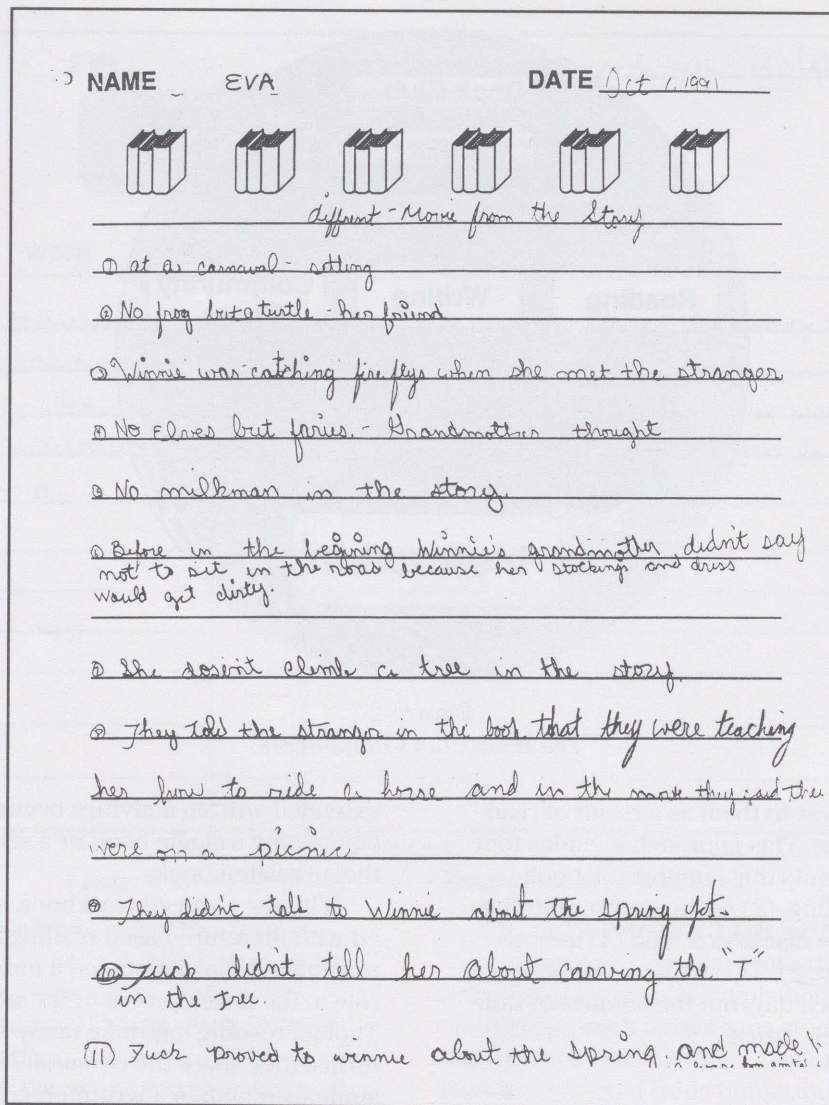 NAME EVA DATE Oct 1, 1991
diffrent - Movie from the Story
① at a carnival - setting
② No frog but a turtle her friend
③ Winnie was catching fire flys when she met the stranger
④ No Elves but faries - Grandmother thought
⑤ No milkman in the story.
⑥ Before in the begining Winnie's grandmother didn't say
not to sit in the because her stockings and dress
would get dirty.
⑦ She dosen't climb a tree in the story.
⑧ They told the stranger in the book that they were teaching
her how to ride a horse and in the movie they said they
were on a picnic.
⑨ They didn't tell to Winnie about the spring yet.
⑩ Tuck didn't tell her about carving the "T"
in the tree.
11 Tuck proved to winnie about the spring and made
Word
Reading Writing Community